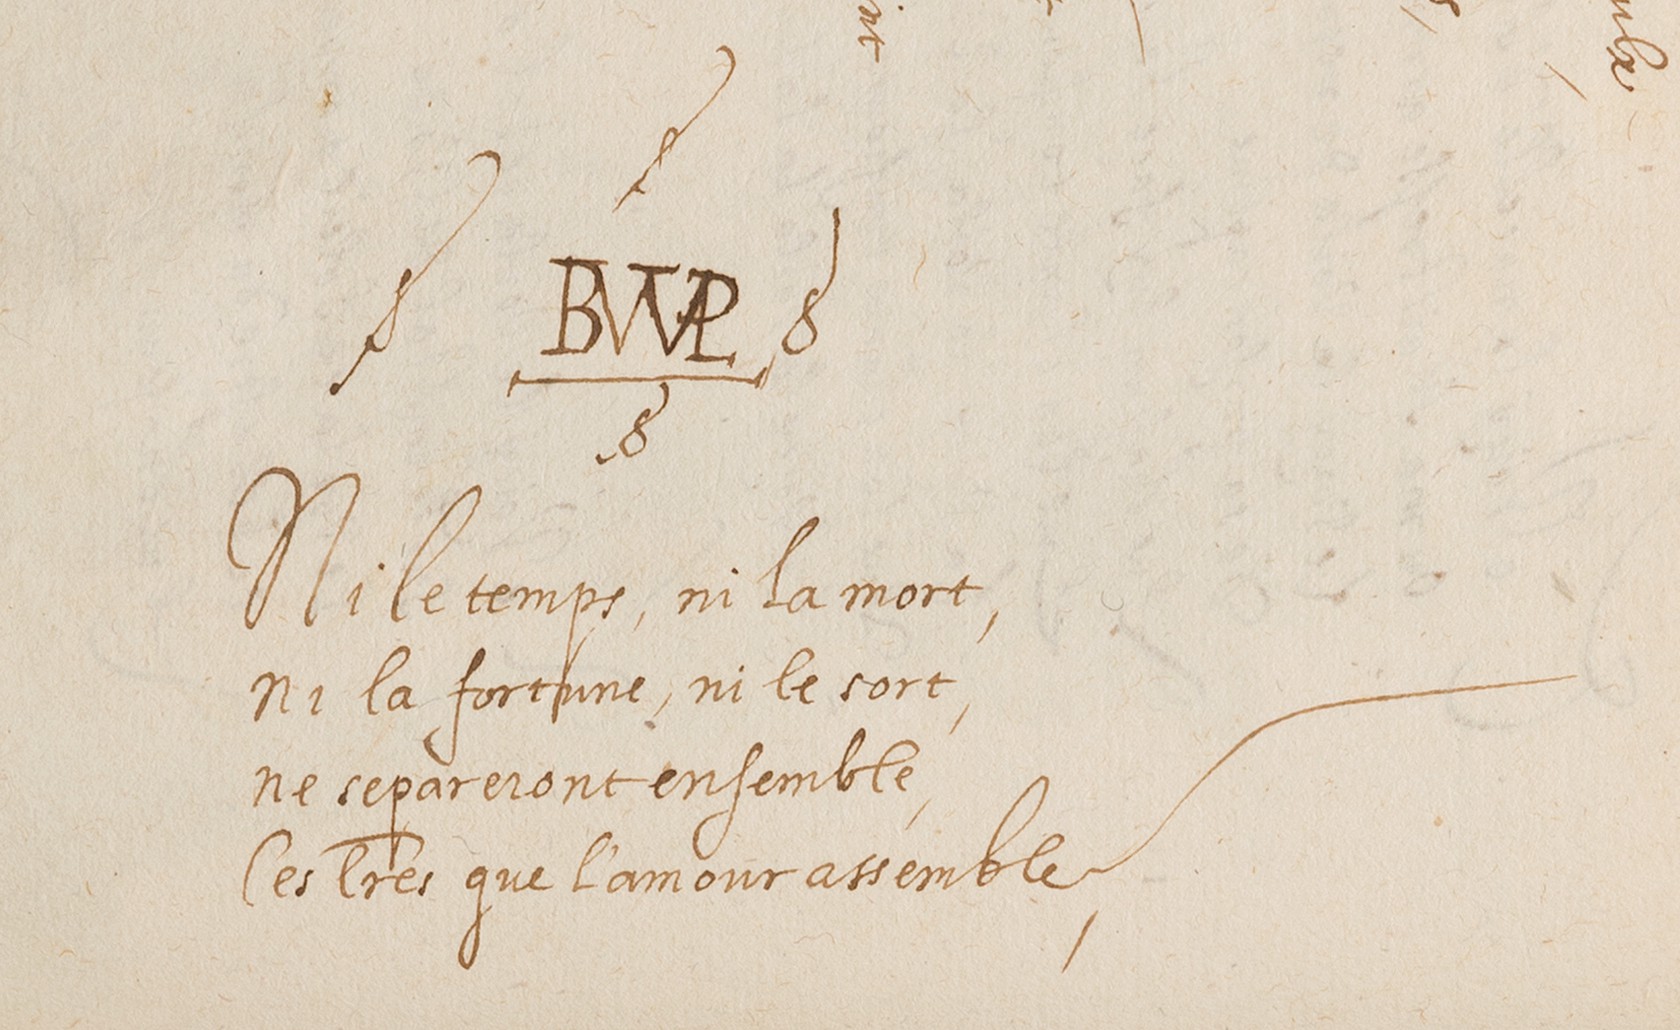 BWAPL
Ni le temps, ni la mort,
ni la fortune, ni le sort,
ne separeront ensemble,
Ces lr̃es que l'amour assemble,